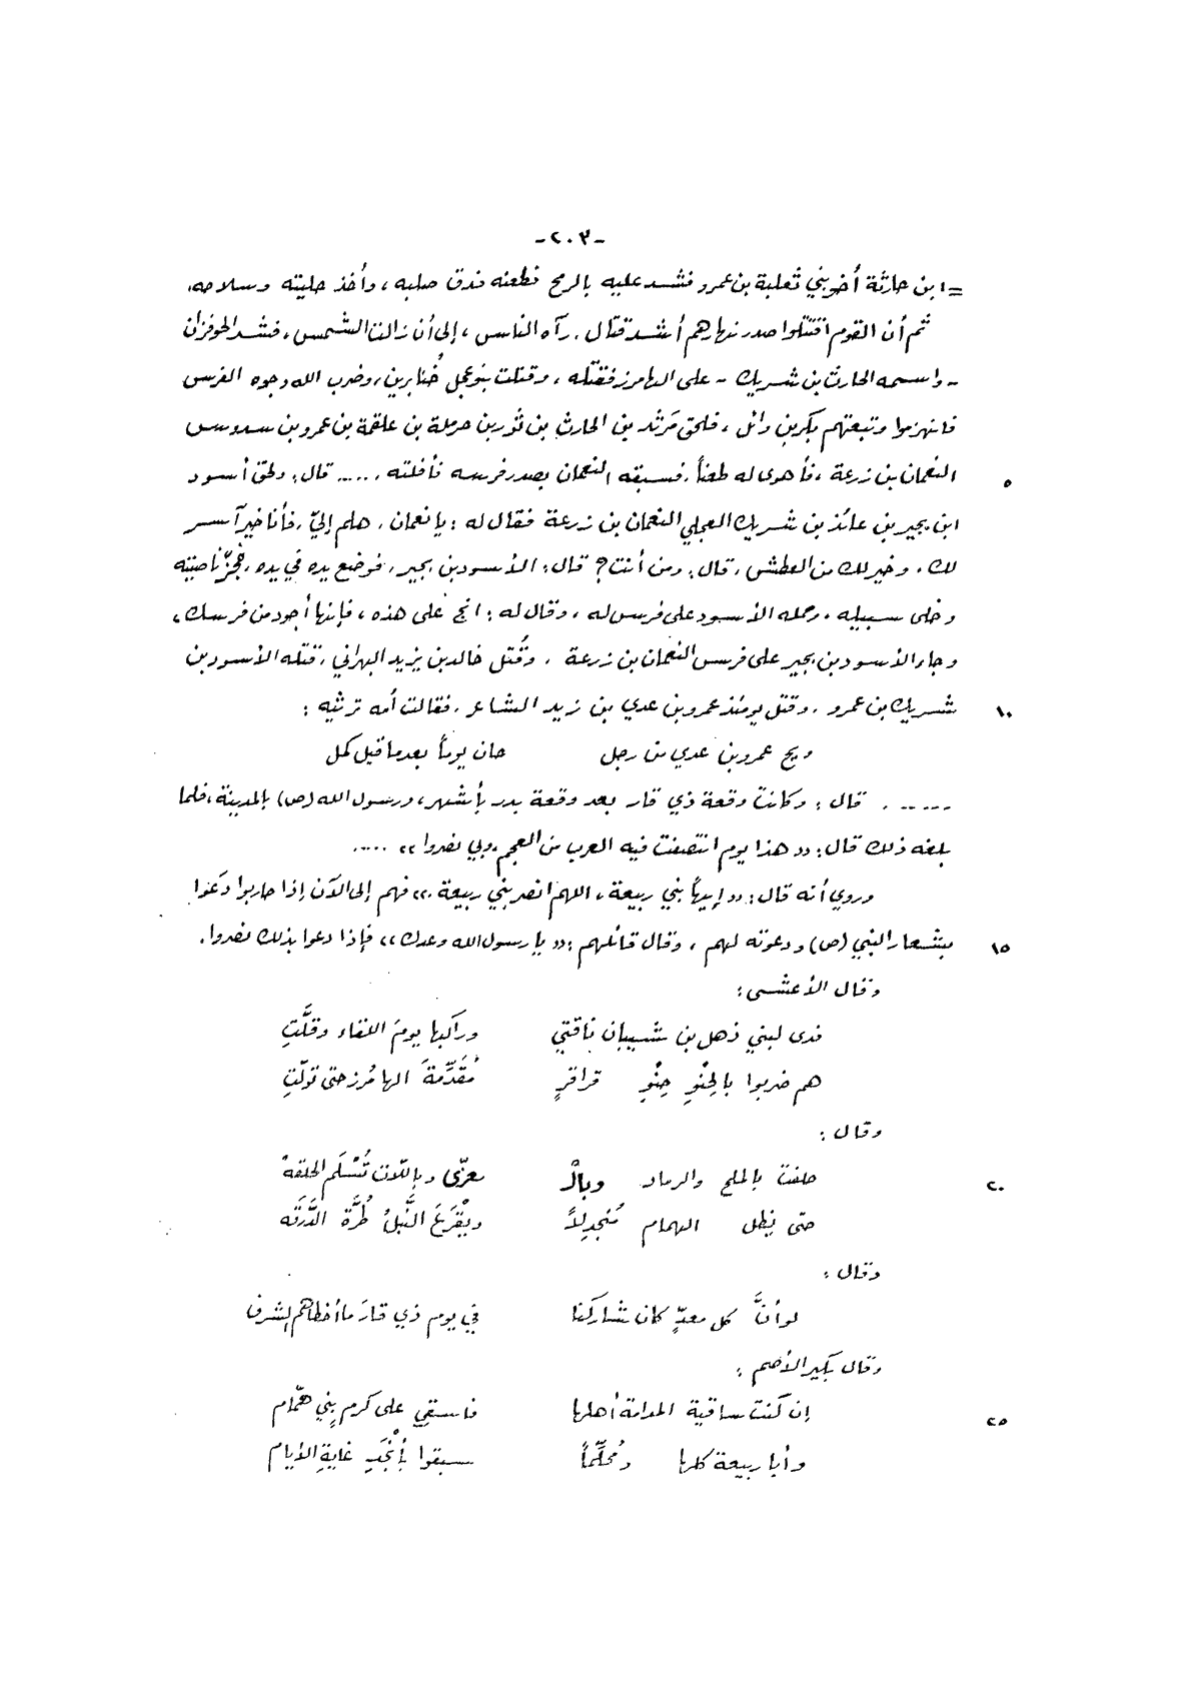 -٢٠٣-
= ابن حارثة أخو بني ثعلبة بن عمرو فشد عليه بالرمح فطعنه فدق صلبه ، وأخذ حليته وسلاحه.
ثم أن القوم اقتتلوا صدر نهارهم أشد قتال . رآه الناس ، إلى أن زالت الشمس ، فشد الحوفزان
- واسمه الحارث بن شريك - على الهامرز فقتله ، وقتلت بنو عجل خُنابرين ، وضرب الله وجوه الفرس
فانهزموا وتبعتهم بكر بن وائل ، فلحق مَرثد بن الحارث بن ثور بن حرملة بن علقمة بن عمرو بن سدوس
النعمان بن زرعة ، فأهوى له طعناً . فسبقه النعمان بصدر فرسه فأفلته ، ..... قال : ولحق أسود
٥
ابن بجير بن عائذ بن شريك العجلي النعمان بن زرعة فقال له : يا نعمان ، هلم إليّ ، فأنا خير آسر
لك ، وخير لك من العطش ، قال : ومن أنت ؟ قال : الأسود بن بجير ، فوضع يده في يده ، فجزّ ناصيته
وخلى سبيله . وحمله الأسود على فرس له ، وقال له : انج على هذه ، فإنها أجود من فرسك ،
وجاء الأسود بن بجير على فرس النعمان بن زرعة ، وقُتل خالد بن يزيد البهراني ، قتله الأسود بن
شريك بن عمرو ، وقتل يومئذ عمرو بن عدي بن زيد الشاعر ، فقالت أمه ترثيه :
١٠
ويح عمرو بن عدي من رجل حان يوماً بعدما قيل كمل
..... . قال : وكانت وقعة ذي قار بعد وقعة بدر بأشهر ، ورسول الله (ص) بالمدينة ، فلما
بلغه ذلك قال : «هذا يوم انتصفت فيه العرب من العجم ، وبي نصروا» .....
وروي أنه قال : «إيهاً بني ربيعة ، اللهم انصر بني ربيعة .» فهم إلى الآن إذا حاربوا دَعَوا
بشعار النبي (ص) ودعوته لهم ، وقال قائلهم : «يا رسول الله وعدك» فإذا دعوا بذلك نصروا.
١٥
وقال الأعشى :
فدى لبني ذهل بن شيبان ناقتي وراكبها يومَ اللقاء وقلَّتِ
هم ضربوا بالحِنْوِ حِنْوِ قراقرٍ مُقَدِّمةَ الهامُرز حتى تولّتِ
وقال :
حلفت بالملح والرماد وبالْ عزّى وباللات تُسْلَم الحلقهْ
٢٠
حتى يظل الهمام مُنجدِلاً ويقْرَعَ النَّبلُ طُرَّة الدَّرَقَه
وقال :
لو أنَّ كل معدٍّ كان شاركنا في يوم ذي قارَ ما أخطاهم الشرف
وقال بكير الأصم :
إن كنت ساقية المدامة أهلها فاسقي على كرم بني همّام
٢٥
وأبا ربيعة كلها ومُحلِّماً سبقوا بأنْجَدِ غايةِ الأيام